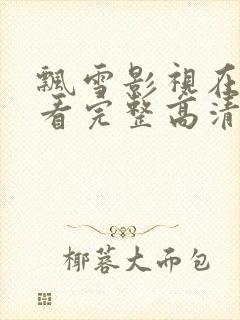 飄雪影視在
看完整高清
椰蓉大而包